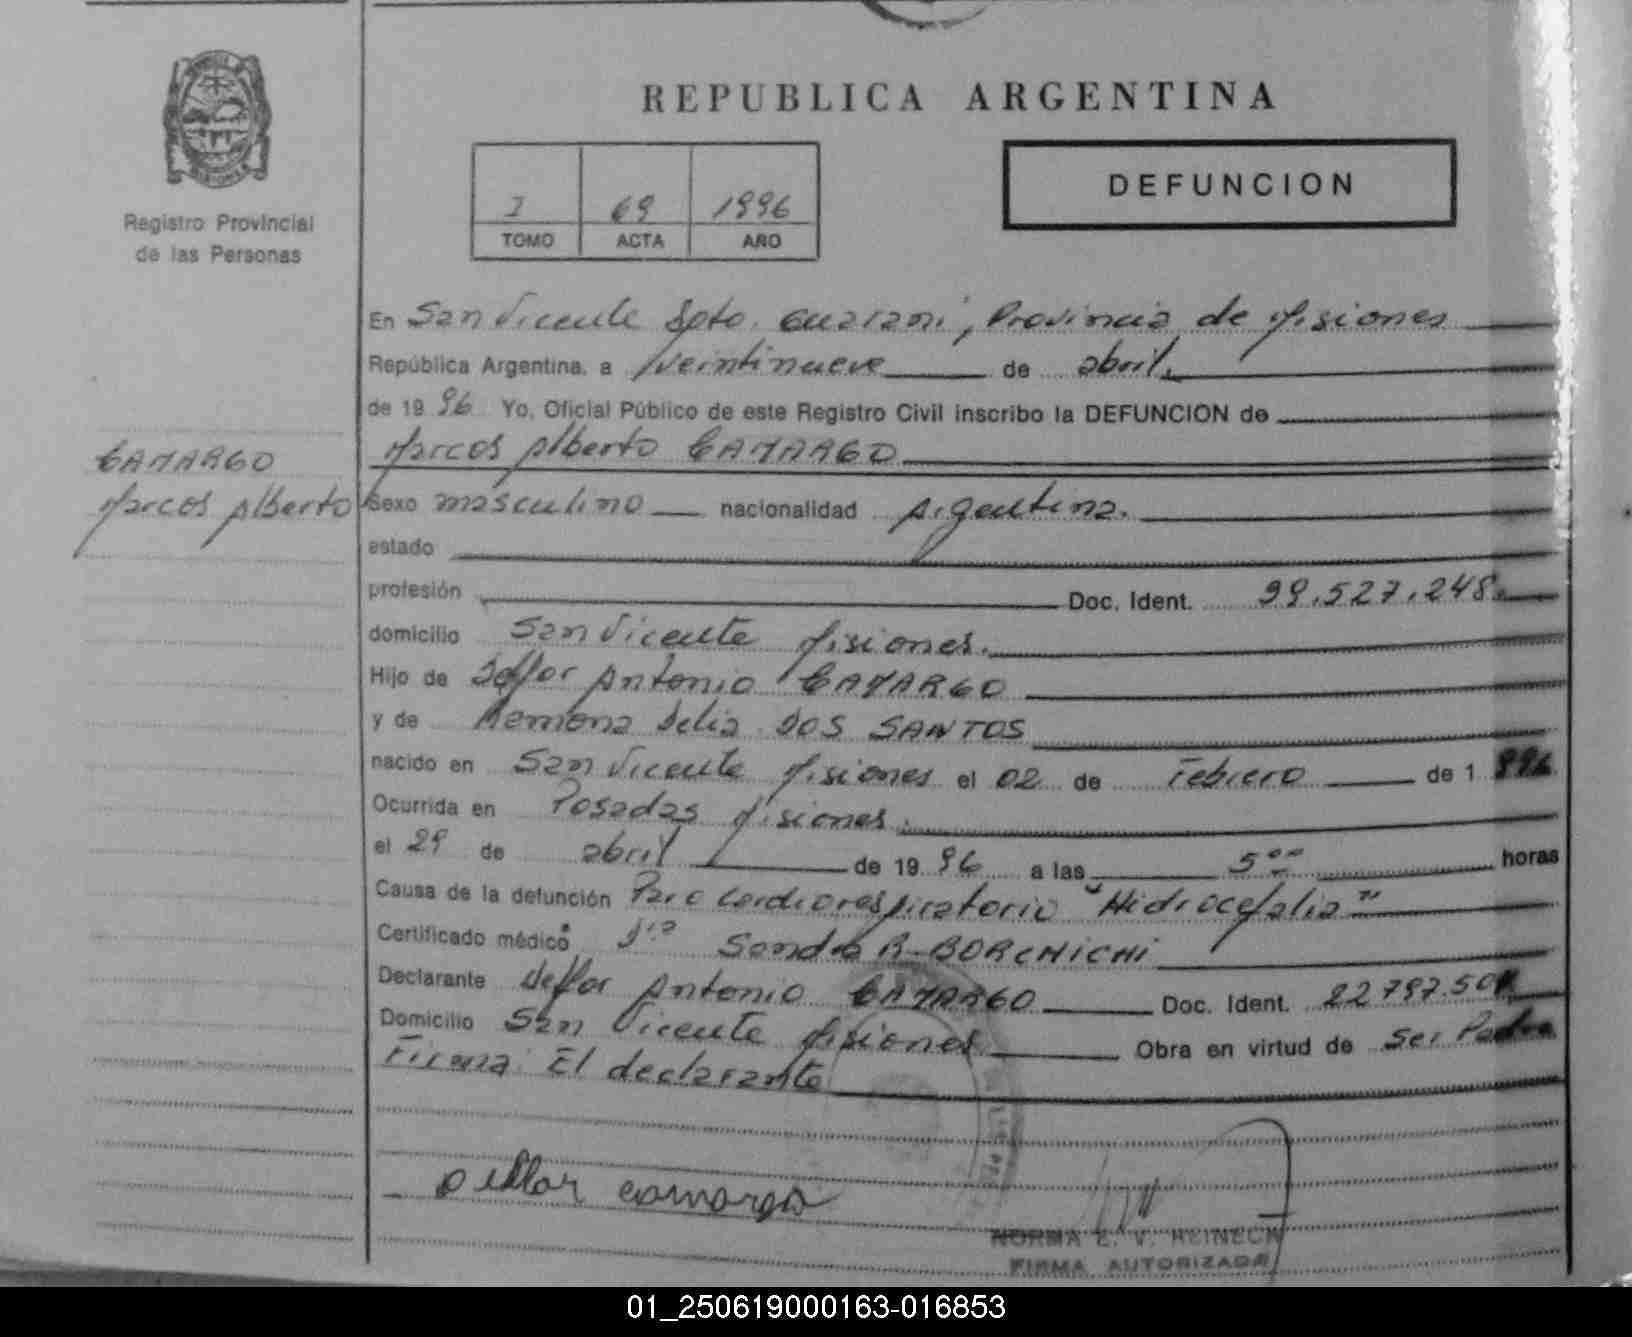 REPUBLICA ARGENTINA
MISIONES
Registro Provincial
de las Personas
I 69 1996
TOMO ACTA AÑO
DEFUNCION
En San Vicente Dpto. Guaraní, Provincia de Misiones
República Argentina, a veintinueve de abril.
de 1996 Yo, Oficial Público de este Registro Civil inscribo la DEFUNCION de
Marcos Alberto CAMARGO
CAMARGO
Marcos Alberto
Sexo masculino nacionalidad Argentina.
estado
profesión Doc. Ident. 39.527.248.
domicilio San Vicente Misiones.
Hijo de Antonio CAMARGO
y de Ramona Delia DOS SANTOS
nacido en San Vicente Misiones el 02 de Febrero de 1996
Ocurrida en Posadas Misiones.
el 29 de abril de 1996 a las 5:00 horas
Causa de la defunción Paro Cardiorespiratorio "Hidrocefalia"
Certificado médico Dra Sandra R. BORCHICHI
Declarante Antonio CAMARGO Doc. Ident. 22.797.501
Domicilio San Vicente Misiones Obra en virtud de Ser Padre
Firma: El declarante
camargo
NORMA E. V. HEINECK
FIRMA AUTORIZADA
01_250619000163-016853